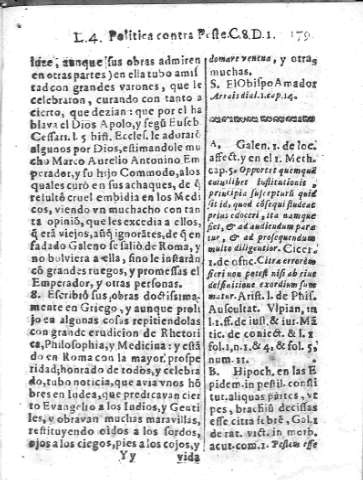 L.4. Politica contra Peste.C.8.D.1. 179
luze, aunque sus obras admiren
en otras partes) en ella tubo amis
tad con grandes varones, que le
celebraron, curando con tanto a
cierto, que dezian: que por el ha
blava el Dios Apolo, y segũ Euseb
Cessari. l. 5 hist. Eccles. le adorarõ
algunos por Dios, estimandole mu
cho Marco Aurelio Antonino Em
perador, y su hijo Commodo, a los
quales curò en sus achaques, de q̃
resultò cruel embidia en los Medi
cos, viendo vn muchacho con tan
ta opiniõ, que les excedia a ellos,
q̃ erã viejos, aũq̃ ignorãtes, de q̃ en
fadado Galeno se saliò de Roma, y
no bolviera a ella, sino le instarãn
cõ grandes ruegos, y promessas el
Emperador, y otras personas.
8. Escribiò sus, obras doctissima
mente en Griego, y aunque proli
jo en algunas cosas repitiendolas
con grande erudicion de Rhetori
ca, Philosophia, y Medicina: y estã
do en Roma con la mayor prospe
ridad, honrado de todos, y celebra
do, tubo noticia, que avia vnos hõ
bres en Iudea, que predicavan cier
to Evangelio a los Iudios, y Genti
les, y obravan muchas maravillas,
restituyendo oidos a los sordos,
ojos a los ciegos, pies a los cojos, y
Yy vida
domare ventua, y otras
muchas.
S. El Obispo Amador
Arrais dial. 1. cap. 14.
A, Galen. 1. de loc.
affect. y en el 1. Meth.
cap. 5. Opportet quemquã
institutionis,
principia suscepturũ quid
sit id, quod cõsequi studeat
prius edoceri, ita namque
fiet, & ad audiendum para
tur, & ad prosequendum
multo diligentior. Cicer.
1. de ofic. Cita errorẽm
fieri non potest nisi ab eius
desfinitione exordium sum
matur. Arist. l. de Phis.
Auscultat. Vlpian, in
l. 1. ff. de iust. & iur. Mã
tic. de coniect. & l. 2
fol. 1, n. 1. & 4. & fol. 5,
num. 11.
B. Hipoch. en las E
pidem. in pestil. consti
tut. aliquas partes, vt
pes, brachiũ decissas
esse citra febrẽ, Gal,
2 de rat. vict. in morb.
acut. com. 1. Pestem esse